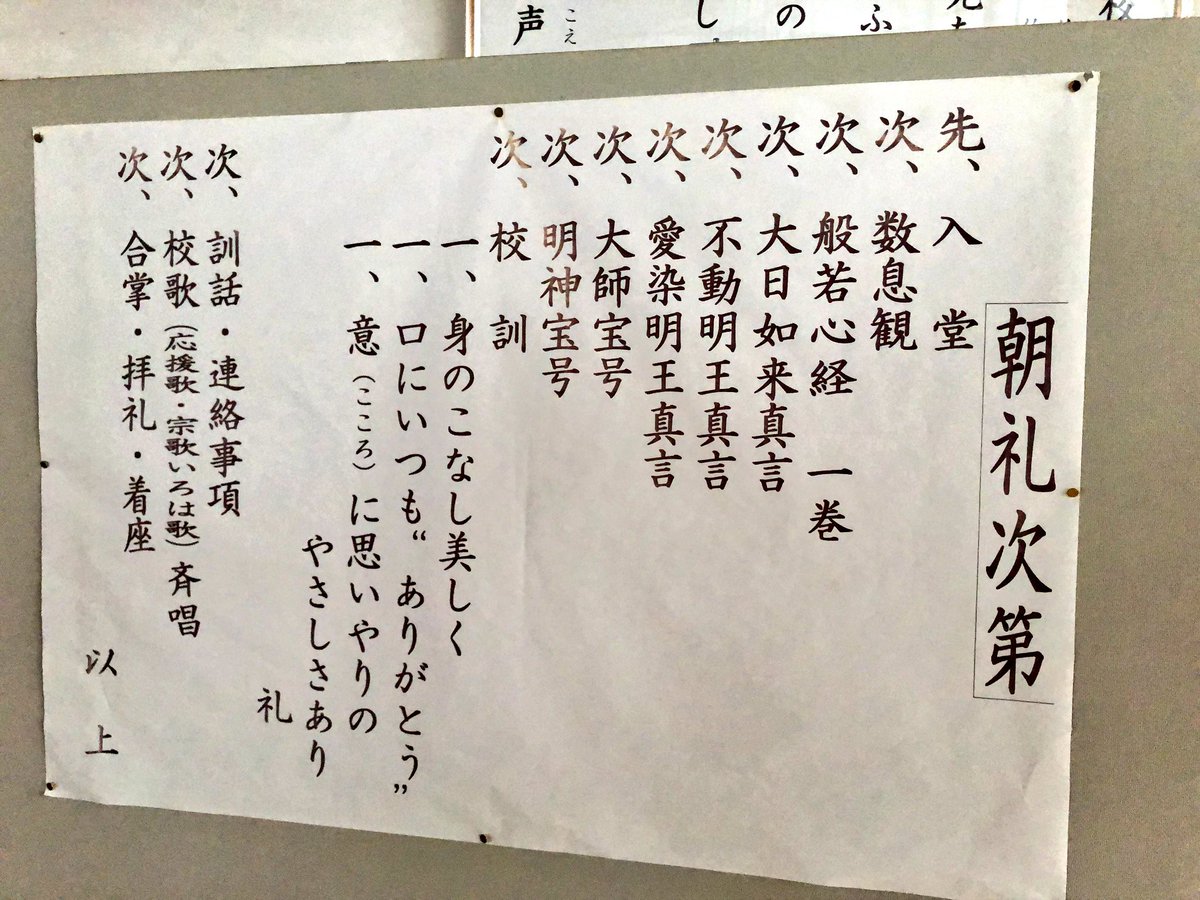 声
こえ
し
の
ふ
朝礼次第
先、入堂
次、数息観
次、般若心経　一巻
次、大日如来真言
次、不動明王真言
次、愛染明王真言
次、大師宝号
次、明神宝号
次、校訓
一、身のこなし美しく
一、口にいつも“ありがとう”
一、意（こころ）に思いやりの
やさしさあり
礼
次、訓話・連絡事項
次、校歌（応援歌・宗歌いろは歌）斉唱
次、合掌・拝礼・着座
以上